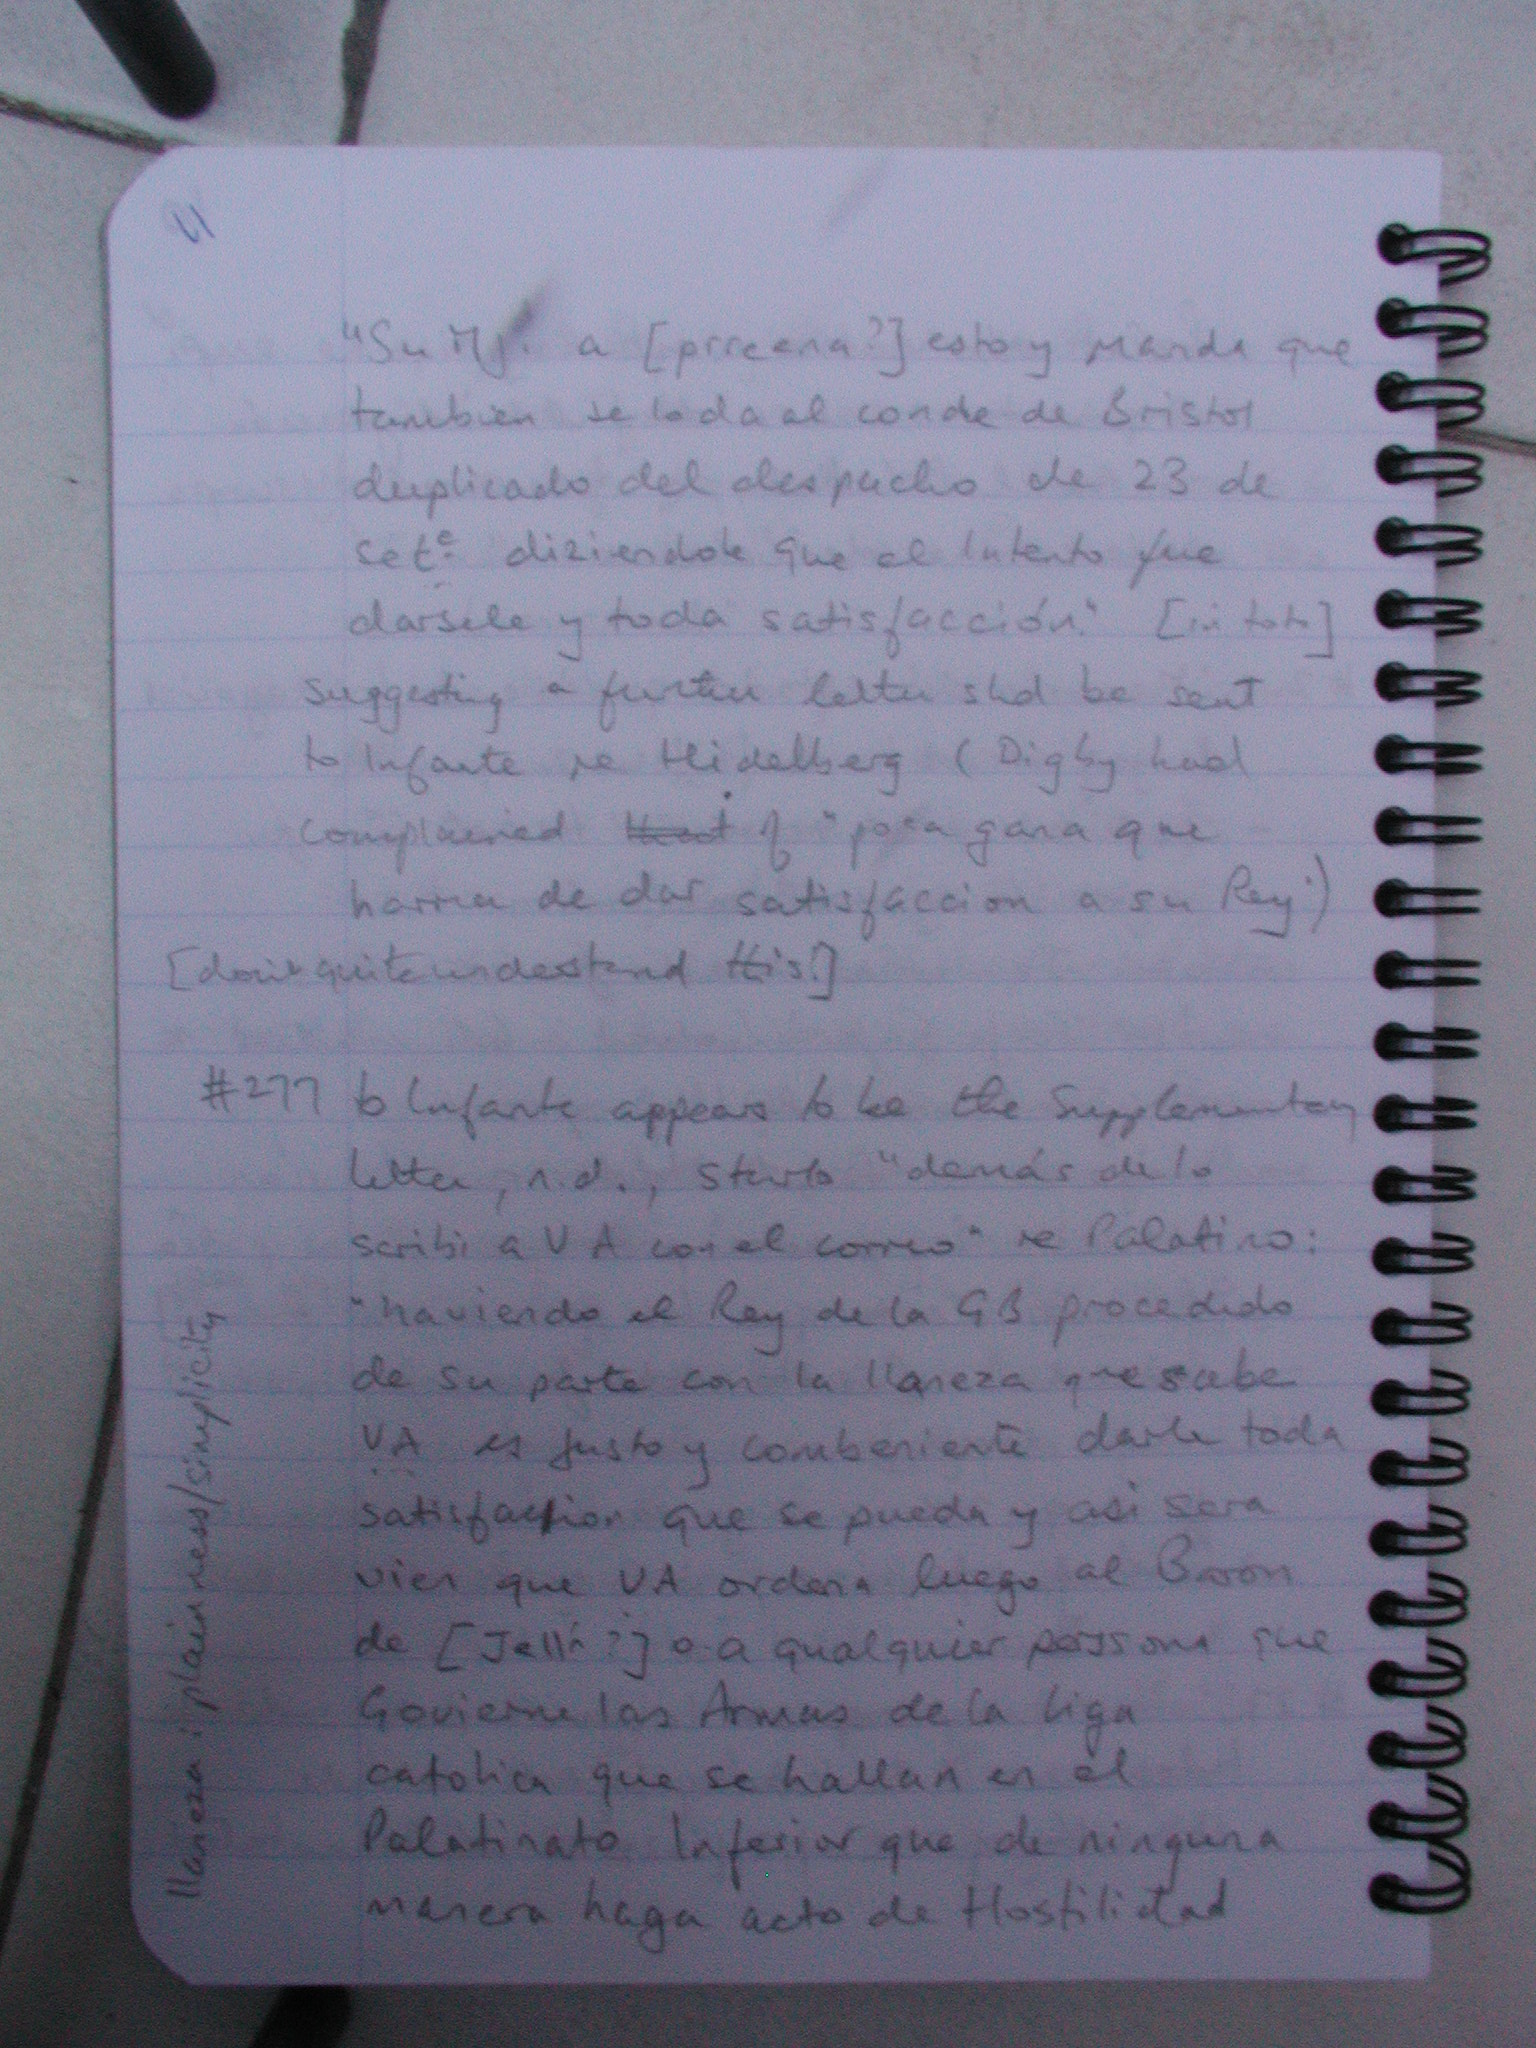 11
"Su Mj. a [prreena?] esto y manda que
tambien se lo da al conde de Bristol
duplicado del despacho de 23 de
sete. diziendole que el Intento fue
darsele y toda satisfacción." [in toto]
suggesting a further letter shd be sent
to Infante re Hidelberg (Digby had
complained that of "poca gana que
harria de dar satisfaccion a su Rey")
[don't quite understand this!]
#277 to Infante appears to be the supplementary
letter, n.d., starts "demás de lo
scribi a VA con el correo" re Palatino:
"haviendo el Rey de la GB procedido
de su parte con la llaneza que sabe
VA es justo y combeniente darle toda
satisfaction que se pueda y asi sera
vien que VA ordena luego al Baron
de [Jelli?] o a qualquier perssona que
Govierne las Armas de la liga
catolica que se hallan en el
Palatinato Inferior que de ninguna
manera haga acto de Hostilidad
llaneza: plainness/simplicity